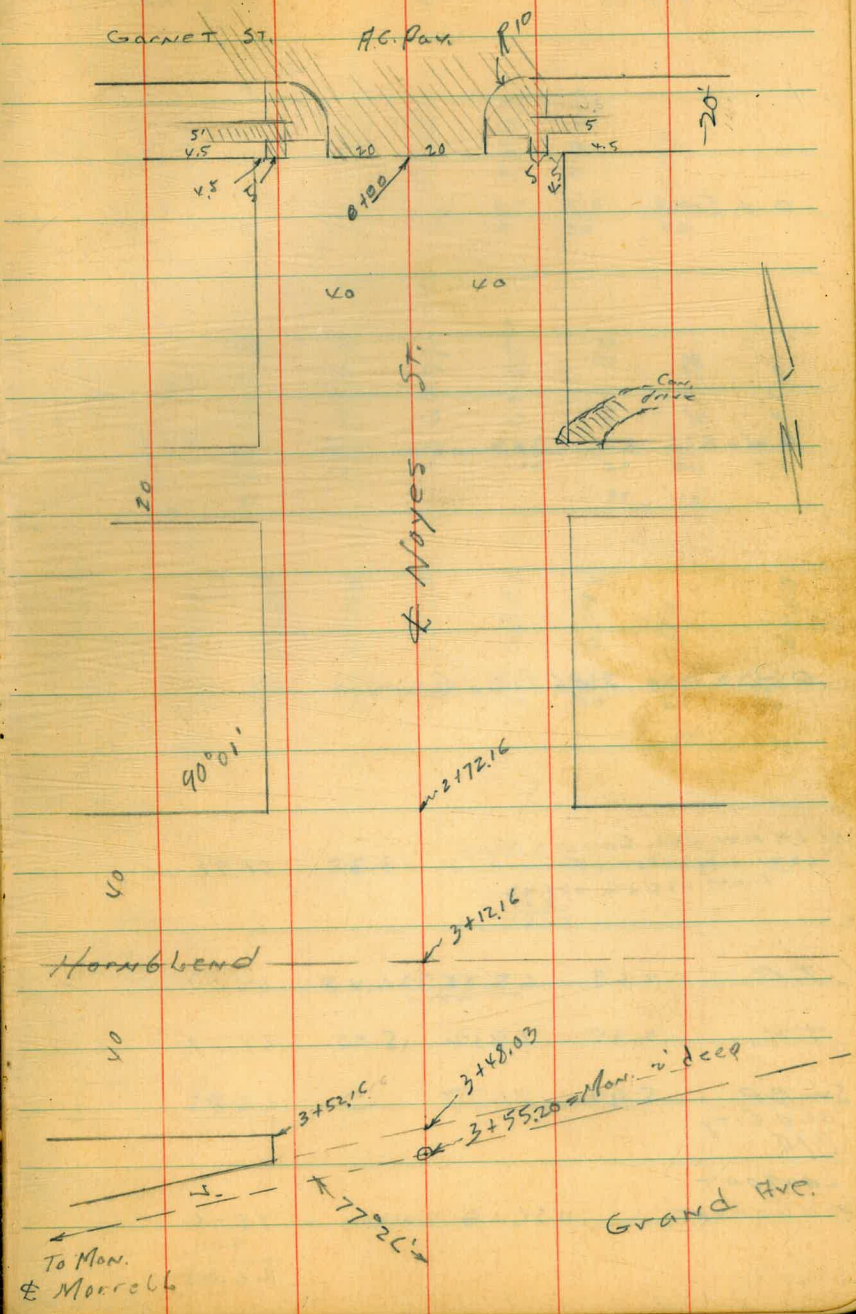 Garnet St. A.C. Pav. R 10
20'
5' 5
4.5 20 20 4.5
4.5 5 5 4.5
0+00
40 40
Con.
drive
20
℄ Noyes St.
N
90°01'
2+72.16
40
3+12.16
Hornblend
40
3+48.03
3+52.16
3+55.20 = Mon. 2' deep
77°26'
Grand Ave.
To Mon.
℄ Morrell